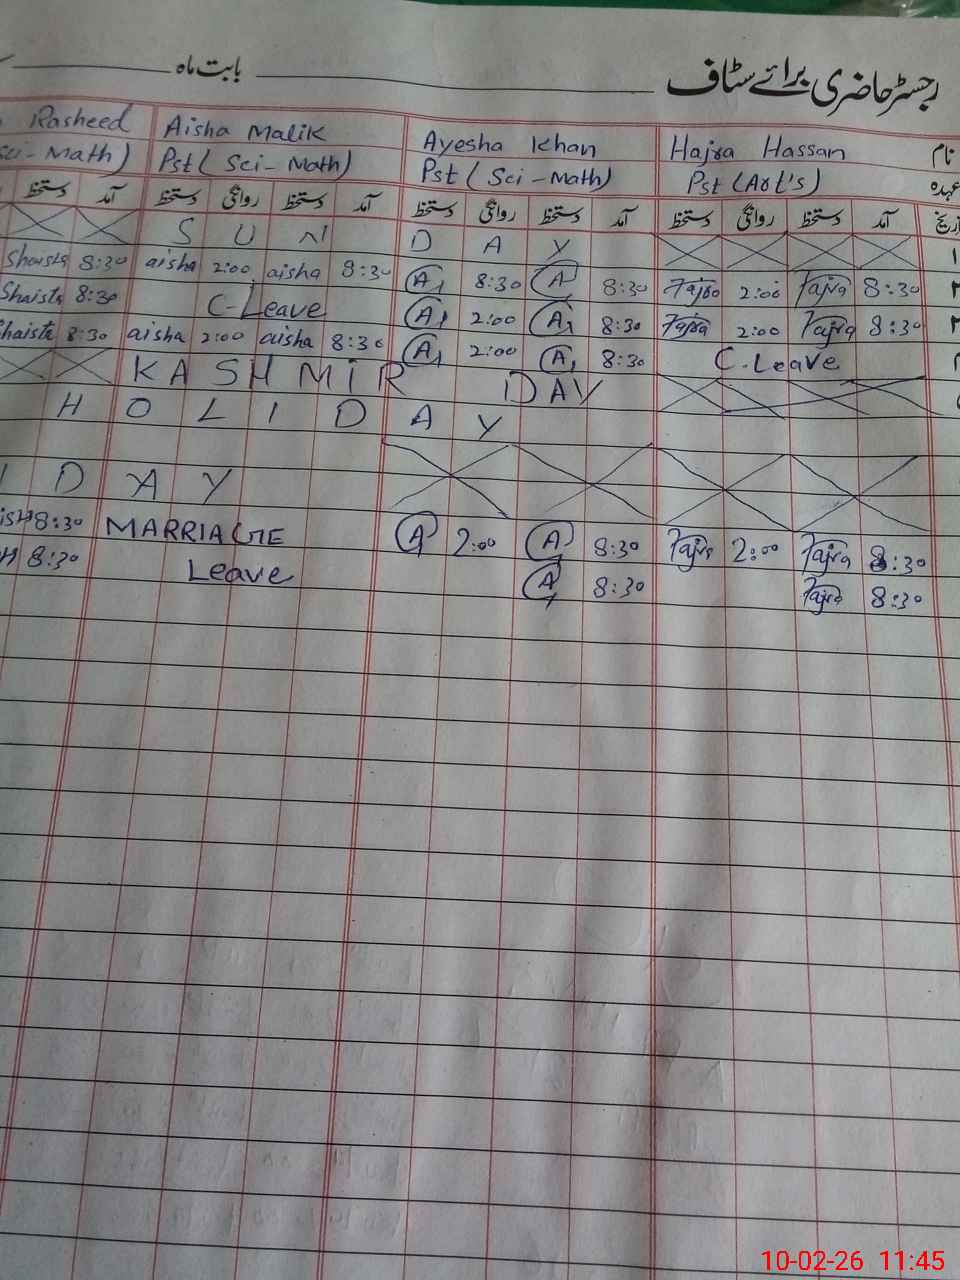 رجسٹر حاضری برائے سٹاف بابت ماہ
نام Hajra Hassan Ayesha Khan Aisha Malik Rasheed
عہدہ Pst (Art's) Pst (Sci - Math) Pst (Sci - Math) Sci - Math)
تاریخ آمد دستخط روانگی دستخط آمد دستخط روانگی دستخط آمد دستخط روانگی دستخط آمد دستخط
۱ S U N D A Y
۲ 8:30 Hajra 2:00 Hajra 8:30 A 8:30 A 8:30 aisha 2:00 aisha 8:30 Shaista
۳ 8:30 Hajra 2:00 Hajra 8:30 A 2:00 A C-Leave 8:30 Shaista
C-Leave 8:30 A 2:00 A 8:30 aisha 2:00 aisha 8:30 Shaista
KASHMIR DAY
HOLIDAY
I D A Y
8:30 Hajra 2:00 Hajra 8:30 A 2:00 A MARRIAGE 8:30
8:30 Hajra 8:30 A Leave 8:30
10-02-26 11:45